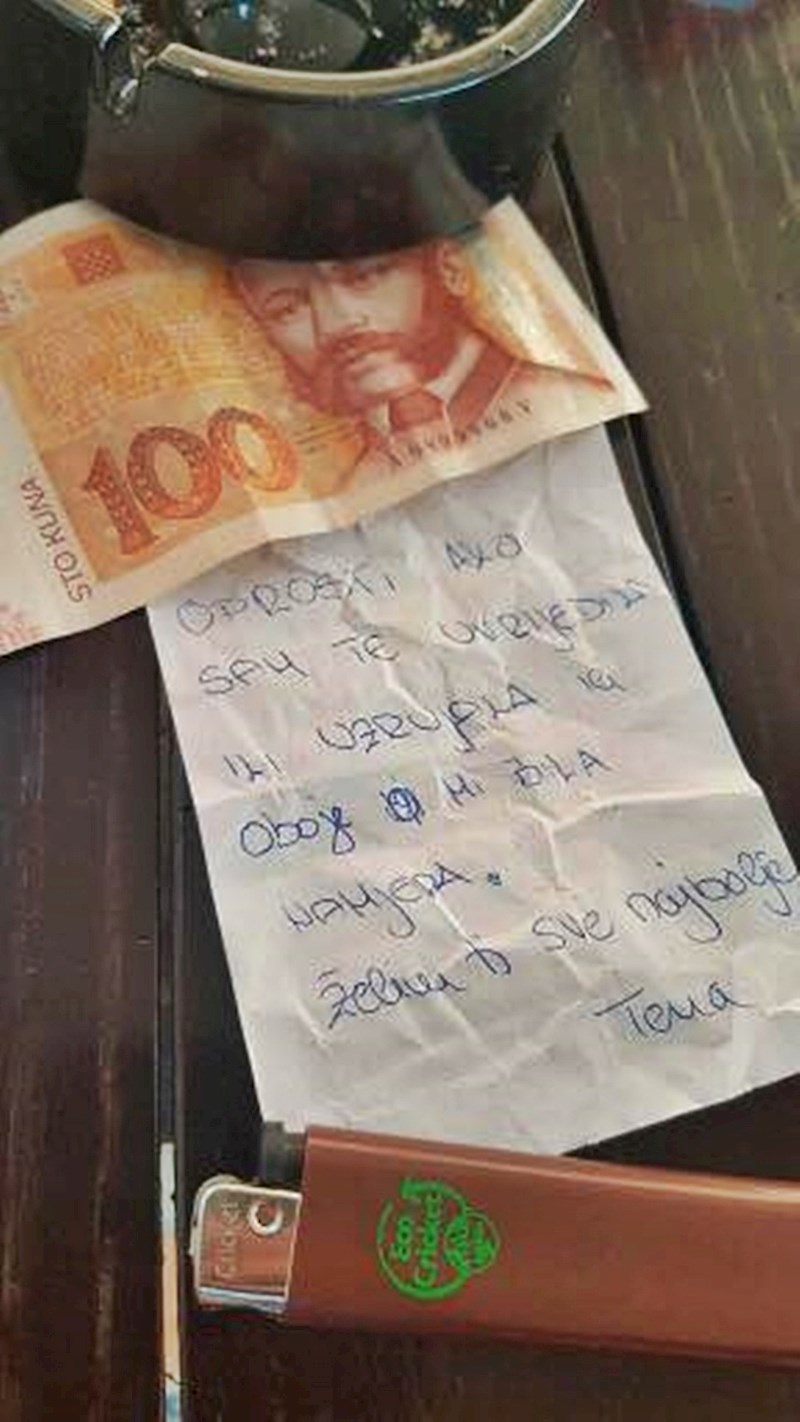 100
STO KUNA
OPROSTI AKO
SAM TE UVRIJEDILA
ILI UZRUJALA
Oboje NI BILA
NAMJERA.
Želim ti sve najbolje
Tena
Cricket
Eco
Cricket